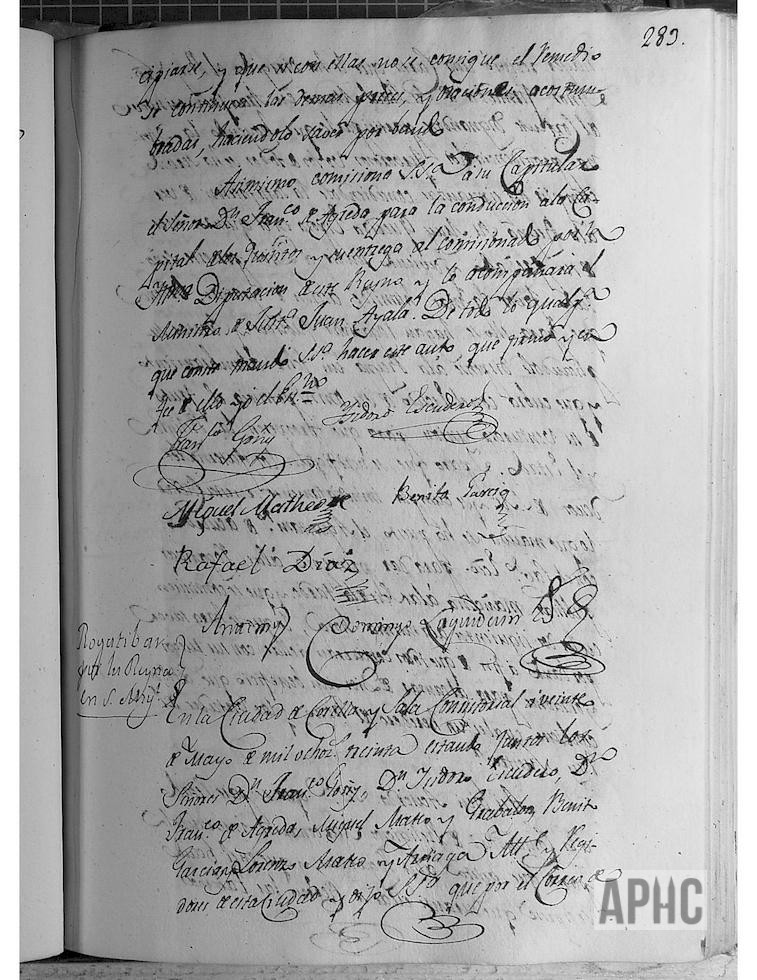 283.
cipiarse, y que si con ellas no se consigue el remedio
se continuen las demas preces, y oraciones acostum-
bradas, haciendolo saver por bando
Asimismo comisiono S.Sª a su Capitular
el Señor Dn Franco de Agreda para la conduccion a la Ca-
pital de los y entrega al comisionado por la
Diputacion de este Reyno y lo acompañará el
Ministro de Justª Juan Ayala. De todo lo qual y pª
que conste mandó S.Sª hacer este auto, que firmó y en
fee de ello yo el Essno
Franco Goñy
Ysidro Escudero
Miguel Matheo
Benito Garcia
Rafael Diaz
Antemy Domingo Laquidain
Rogatibas
por la Reyna
en S. Mig.l
En la Ciudad de Corella y Sala Consistorial a veinte
de Mayo de mil ochoz.s treinta estando juntos los
Señores Dn Franco Goñy, Dn Ysidro Escudero, Dn
Franco de Agreda, Miguel Mateo y Grabalos, Benito
Garcia, Lorenzo Mateo y Arriaga Alle y Regi-
dores de esta Ciudad y dijo S.Sª que por el Correo de
APHC